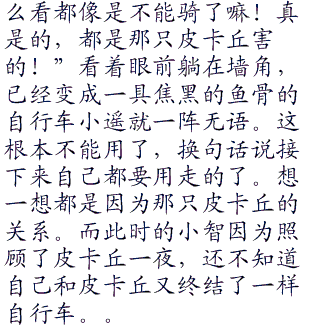 么看都像是不能骑了嘛！真
是的，都是那只皮卡丘害
的！”看着眼前躺在墙角，
已经变成一具焦黑的鱼骨的
自行车小遥就一阵无语。这
根本不能用了，换句话说接
下来自己都要用走的了。想
一想都是因为那只皮卡丘的
关系。而此时的小智因为照
顾了皮卡丘一夜，还不知道
自己和皮卡丘又终结了一样
自行车。。